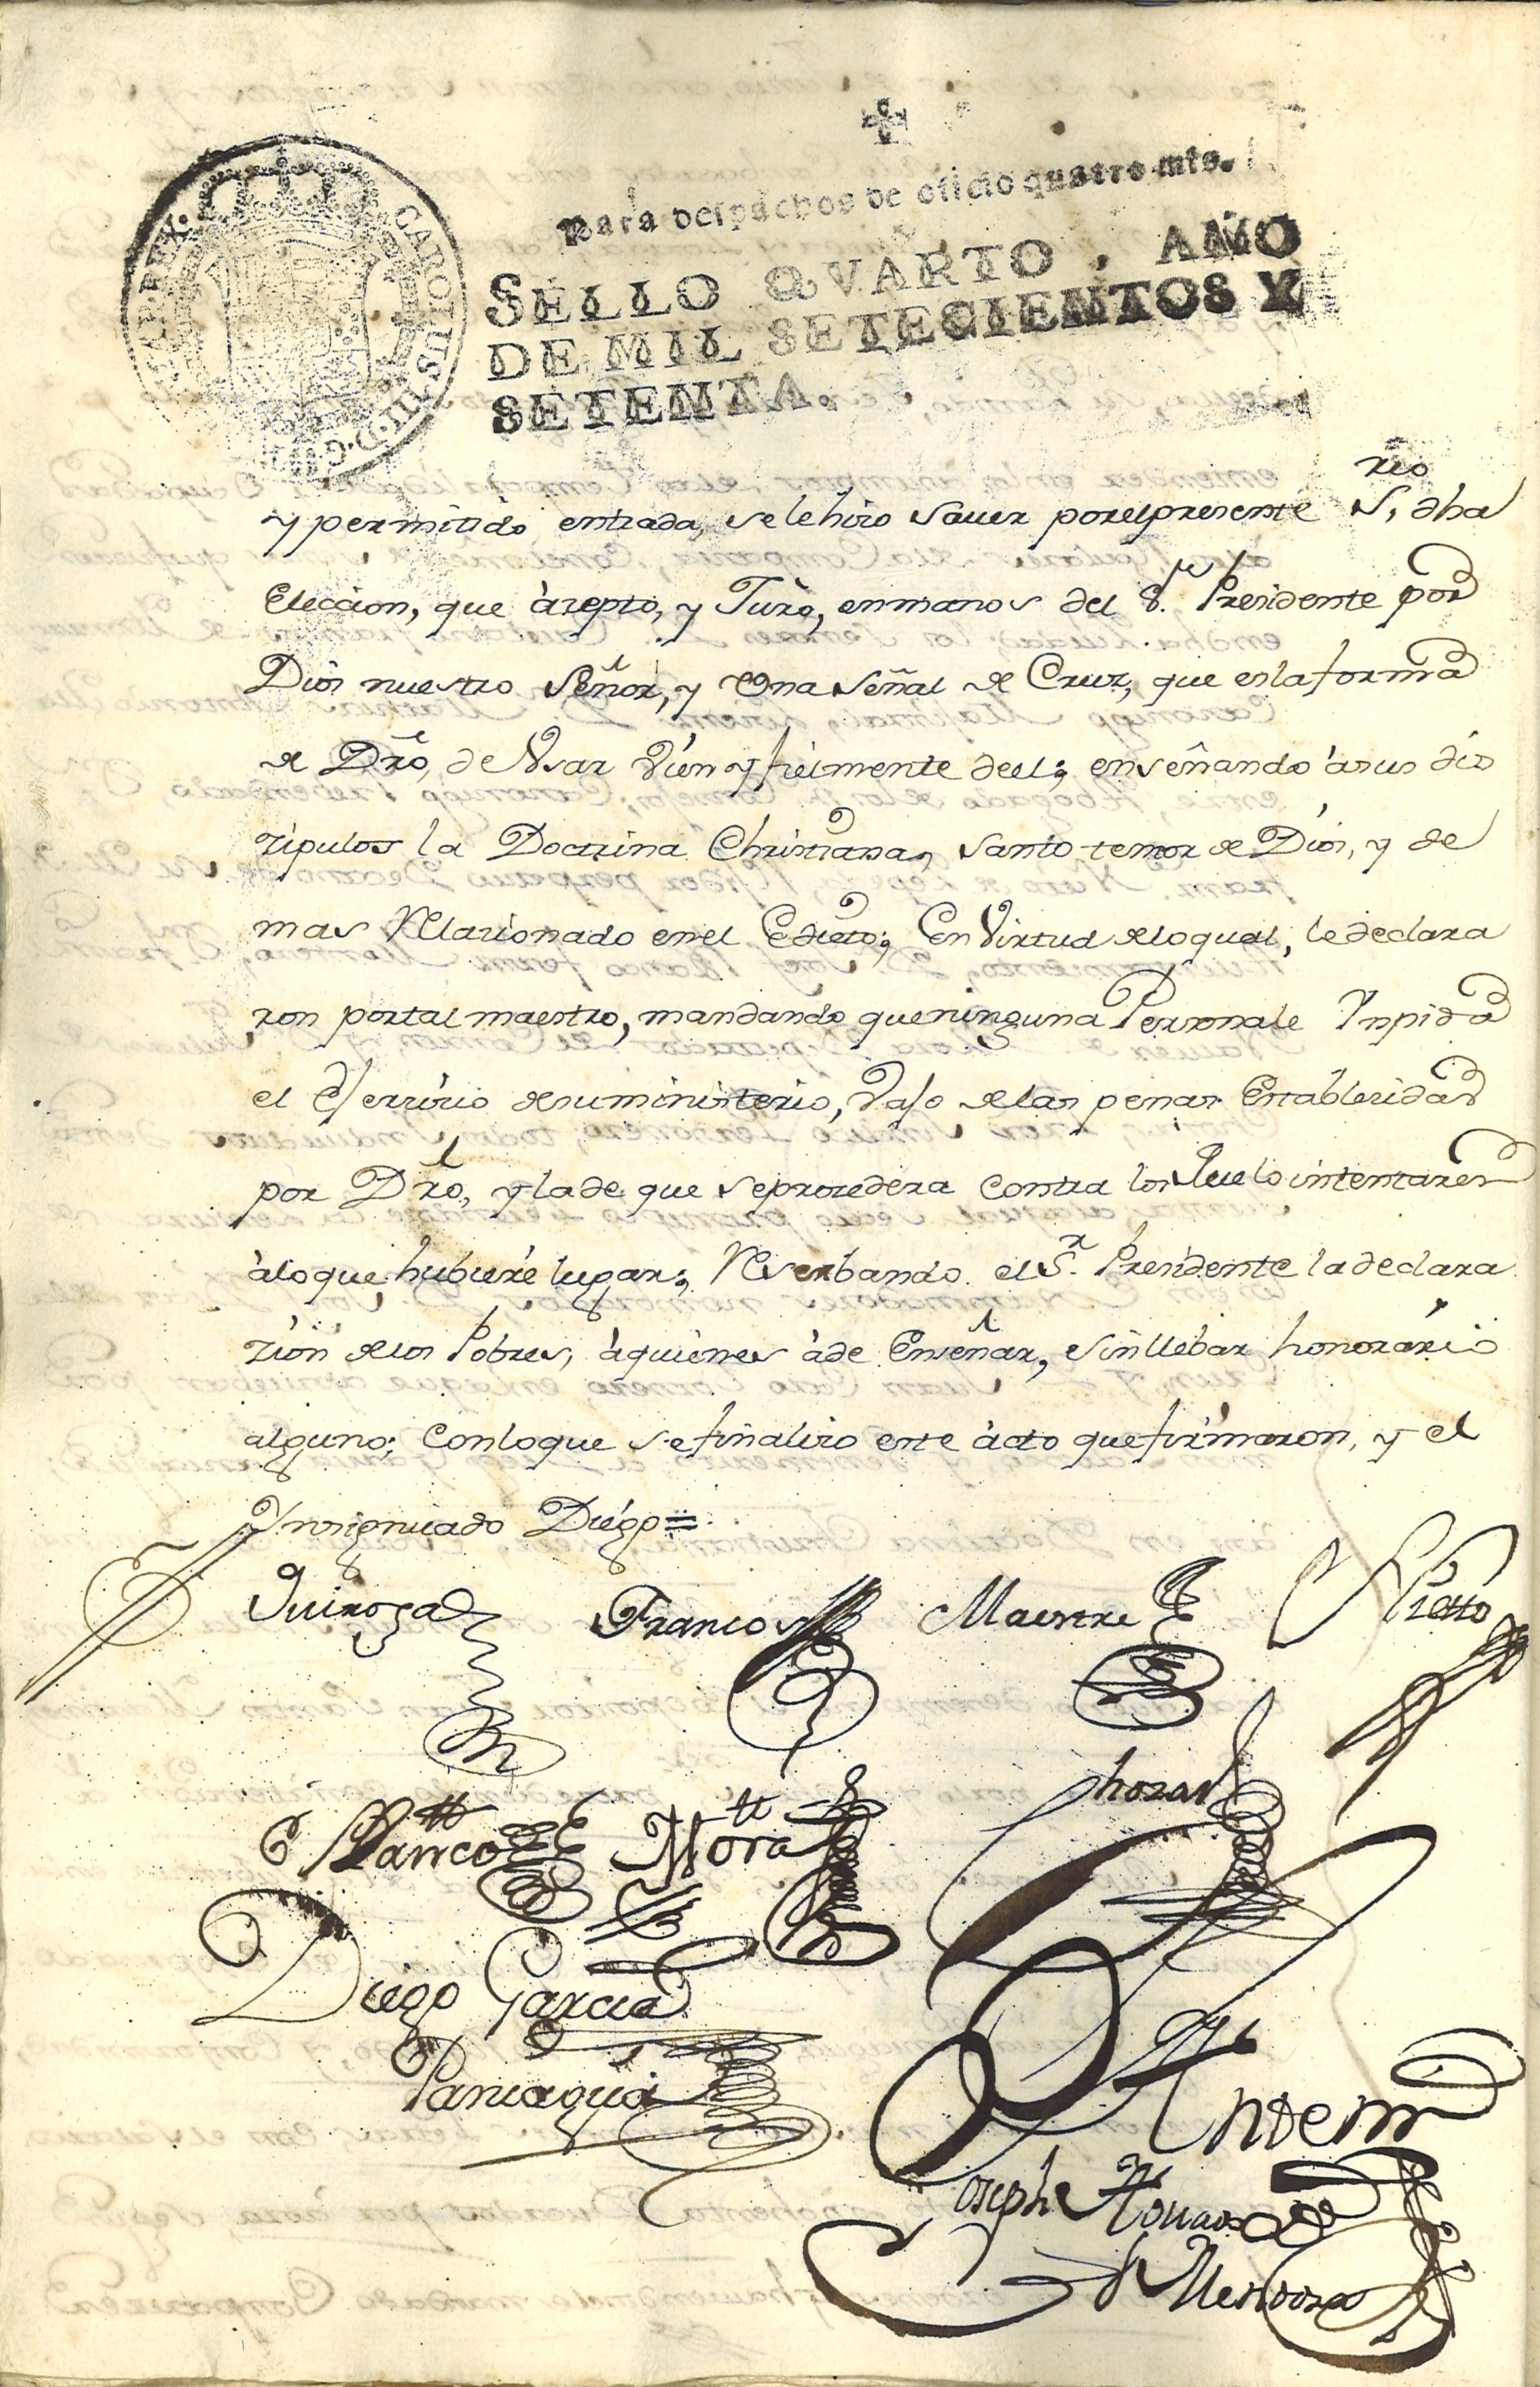 CAROLUS·III·D·G
HISP·REX·
Para despachos de oficio quatro mrs.
SELLO QVARTO, AÑO
DE MIL SETECIENTOS Y
SETENTA.
y permitido entrada, se le hizo sauer por el presente S.rio dha
Eleccion, que àzepto, y Juro, en manos del S.r Presidente por
Dios nuestro Señor, y Una Señal de Cruz, que es la forma
de Dr̃o, de Usar Vien y fielmente de el; enseñando à sus dis
zipulos la Doctrina Christiana, santo temor de Dios, y de
mas Relazionado en el Edicto; En Virtud de lo qual, le declara
ron por tal maestro, mandando que ninguna Persona le Ynpida
el Exerzizio de su ministerio, Vajo de las penas Establezidas
por Dr̃o, y la de que se prozedera contra los que lo intentaren
à lo que hubiere lugar; Reserbando el S.r Presidente la declara
zion de los Pobres, à quienes à de Enseñar, sin llebar honorario
alguno; Con lo que se finalizo este àcto que firmaron, y el
Ynsignuado Diego =
Quiroga
Franco
Maestre
Nieto
Blanco
Mora
Diego Garcia
Paniagua
Ante mi
Joseph
Mendoza